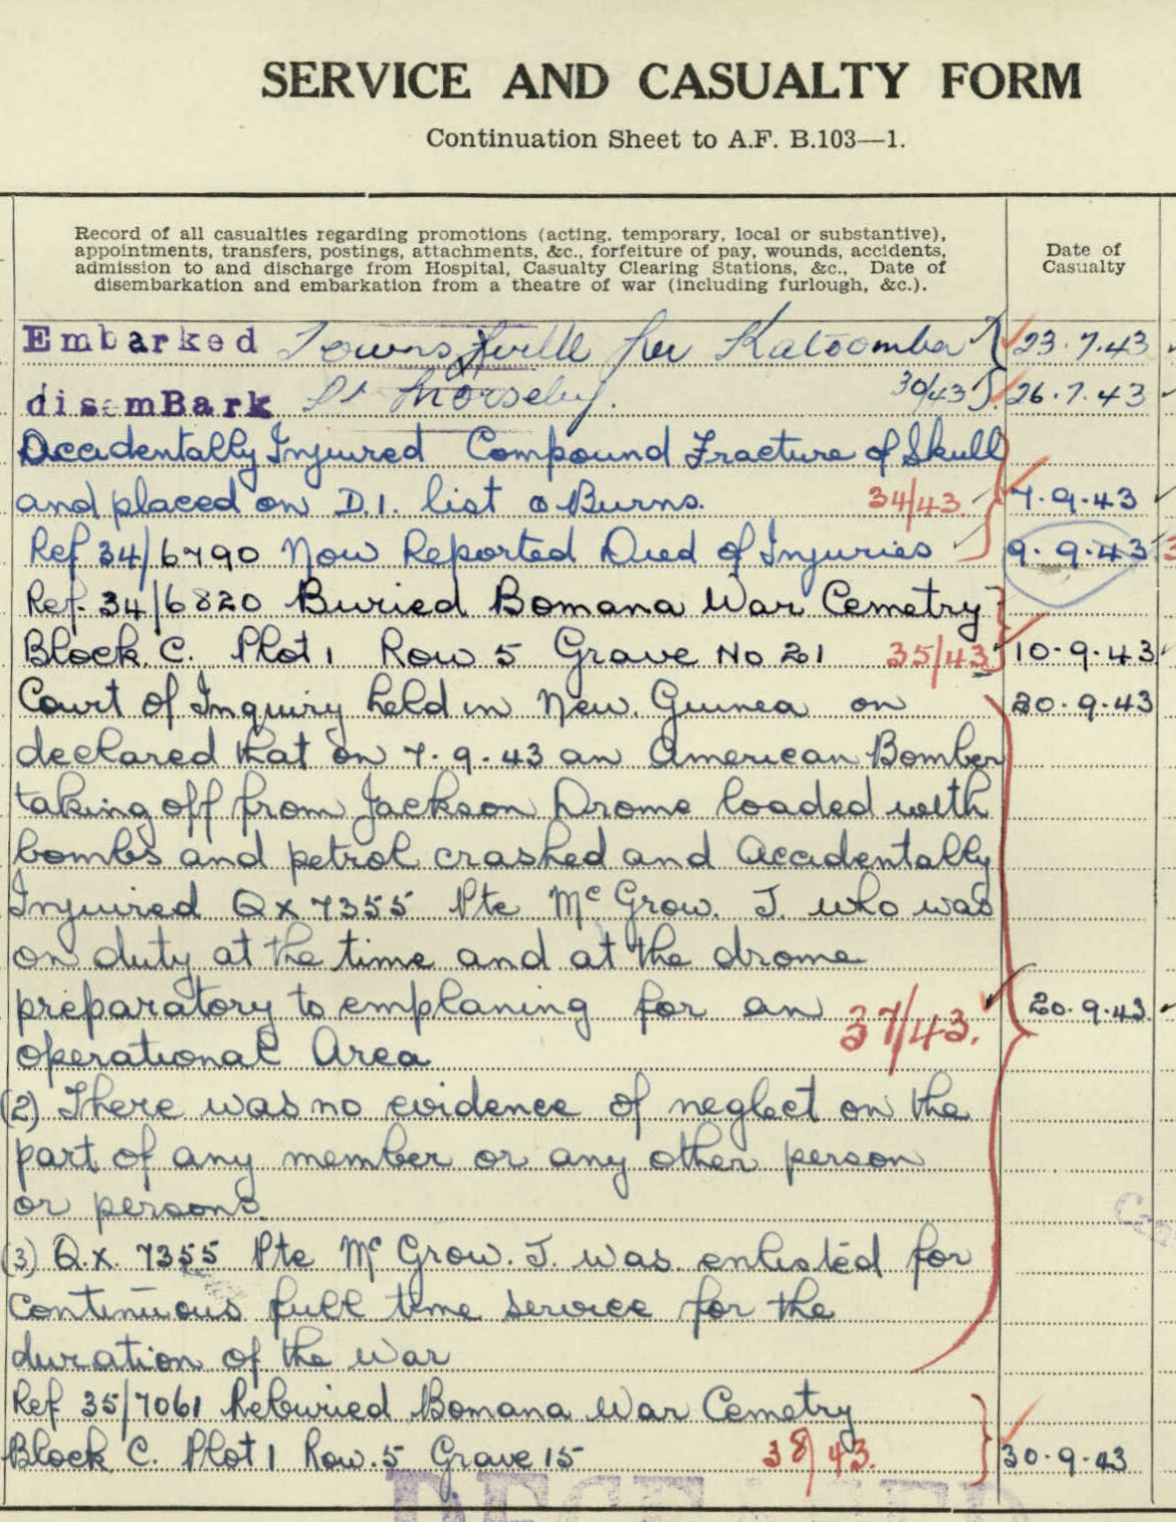 SERVICE AND CASUALTY FORM
Continuation Sheet to A.F. B.103—1.
Record of all casualties regarding promotions (acting, temporary, local or substantive),
appointments, transfers, postings, attachments, &c., forfeiture of pay, wounds, accidents,
admission to and discharge from Hospital, Casualty Clearing Stations, &c., Date of
disembarkation and embarkation from a theatre of war (including furlough, &c.).
Date of
Casualty
Embarked Townsville per Katoomba 23.7.43
disemBark Pt Moresby. 30/43 26.7.43
Accidentally Injured Compound Fracture of Skull
and placed on D.I. list & Burns. 34/43 7.9.43
Ref 34/6790 Now Reported Died of Injuries 9.9.43
Ref. 34/6820 Buried Bomana War Cemetry
Block. C. Plot 1 Row 5 Grave No 21 35/43 10.9.43
Court of Inquiry held in New. Guinea on 20.9.43
declared that on 7.9.43 an American Bomber
taking off from Jackson Drome loaded with
bombs and petrol crashed and Accidentally
Injuired QX7355 Pte McGrow. J. who was
on duty at the time and at the drome
preparatory to emplaning for an 37/43. 20.9.43.
operational Area
(2) There was no evidence of neglect on the
part of any member or any other person
or persons.
(3) Q.X. 7355 Pte McGrow. J. was enlisted for
Continuous full time service for the
duration of the War
Ref 35/7061 Reburied Bomana War Cemetry
Block C. Plot 1 Row. 5 Grave 15 38/43. 30.9.43
DECEASED